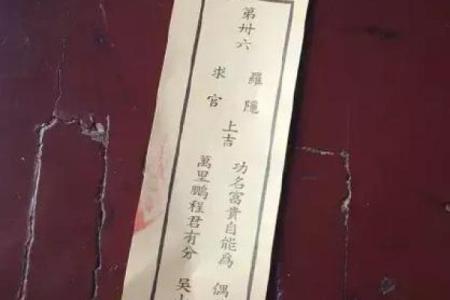 第卅六
羅隱
求官
上吉
功名富貴自能為 偶
萬里鵬程君有分 吳